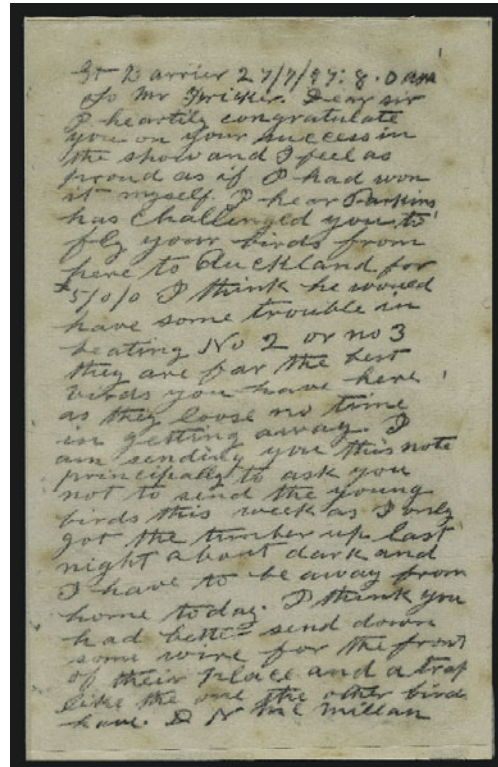 Gt Barrier 27/7/97: 8.0 AM
To Mr Fricker. Dear sir
I heartily congratulate
you on your success in
the show and I feel as
proud as if I had won
it myself. I hear Parkins
has challenged you to
fly your birds from
here to Auckland for
£5/0/0 I think he would
have some trouble in
beating No 2 or no 3
they are far the best
birds you have here
as they loose no time
in getting away. I
am sending you this note
principally to ask you
not to send the young
birds this week as I only
got the timber up last
night about dark and
I have to be away from
home today. I think you
had better send down
some wire for the front
of their place and a trap
like the one the other birds
have. D N Mc Millan